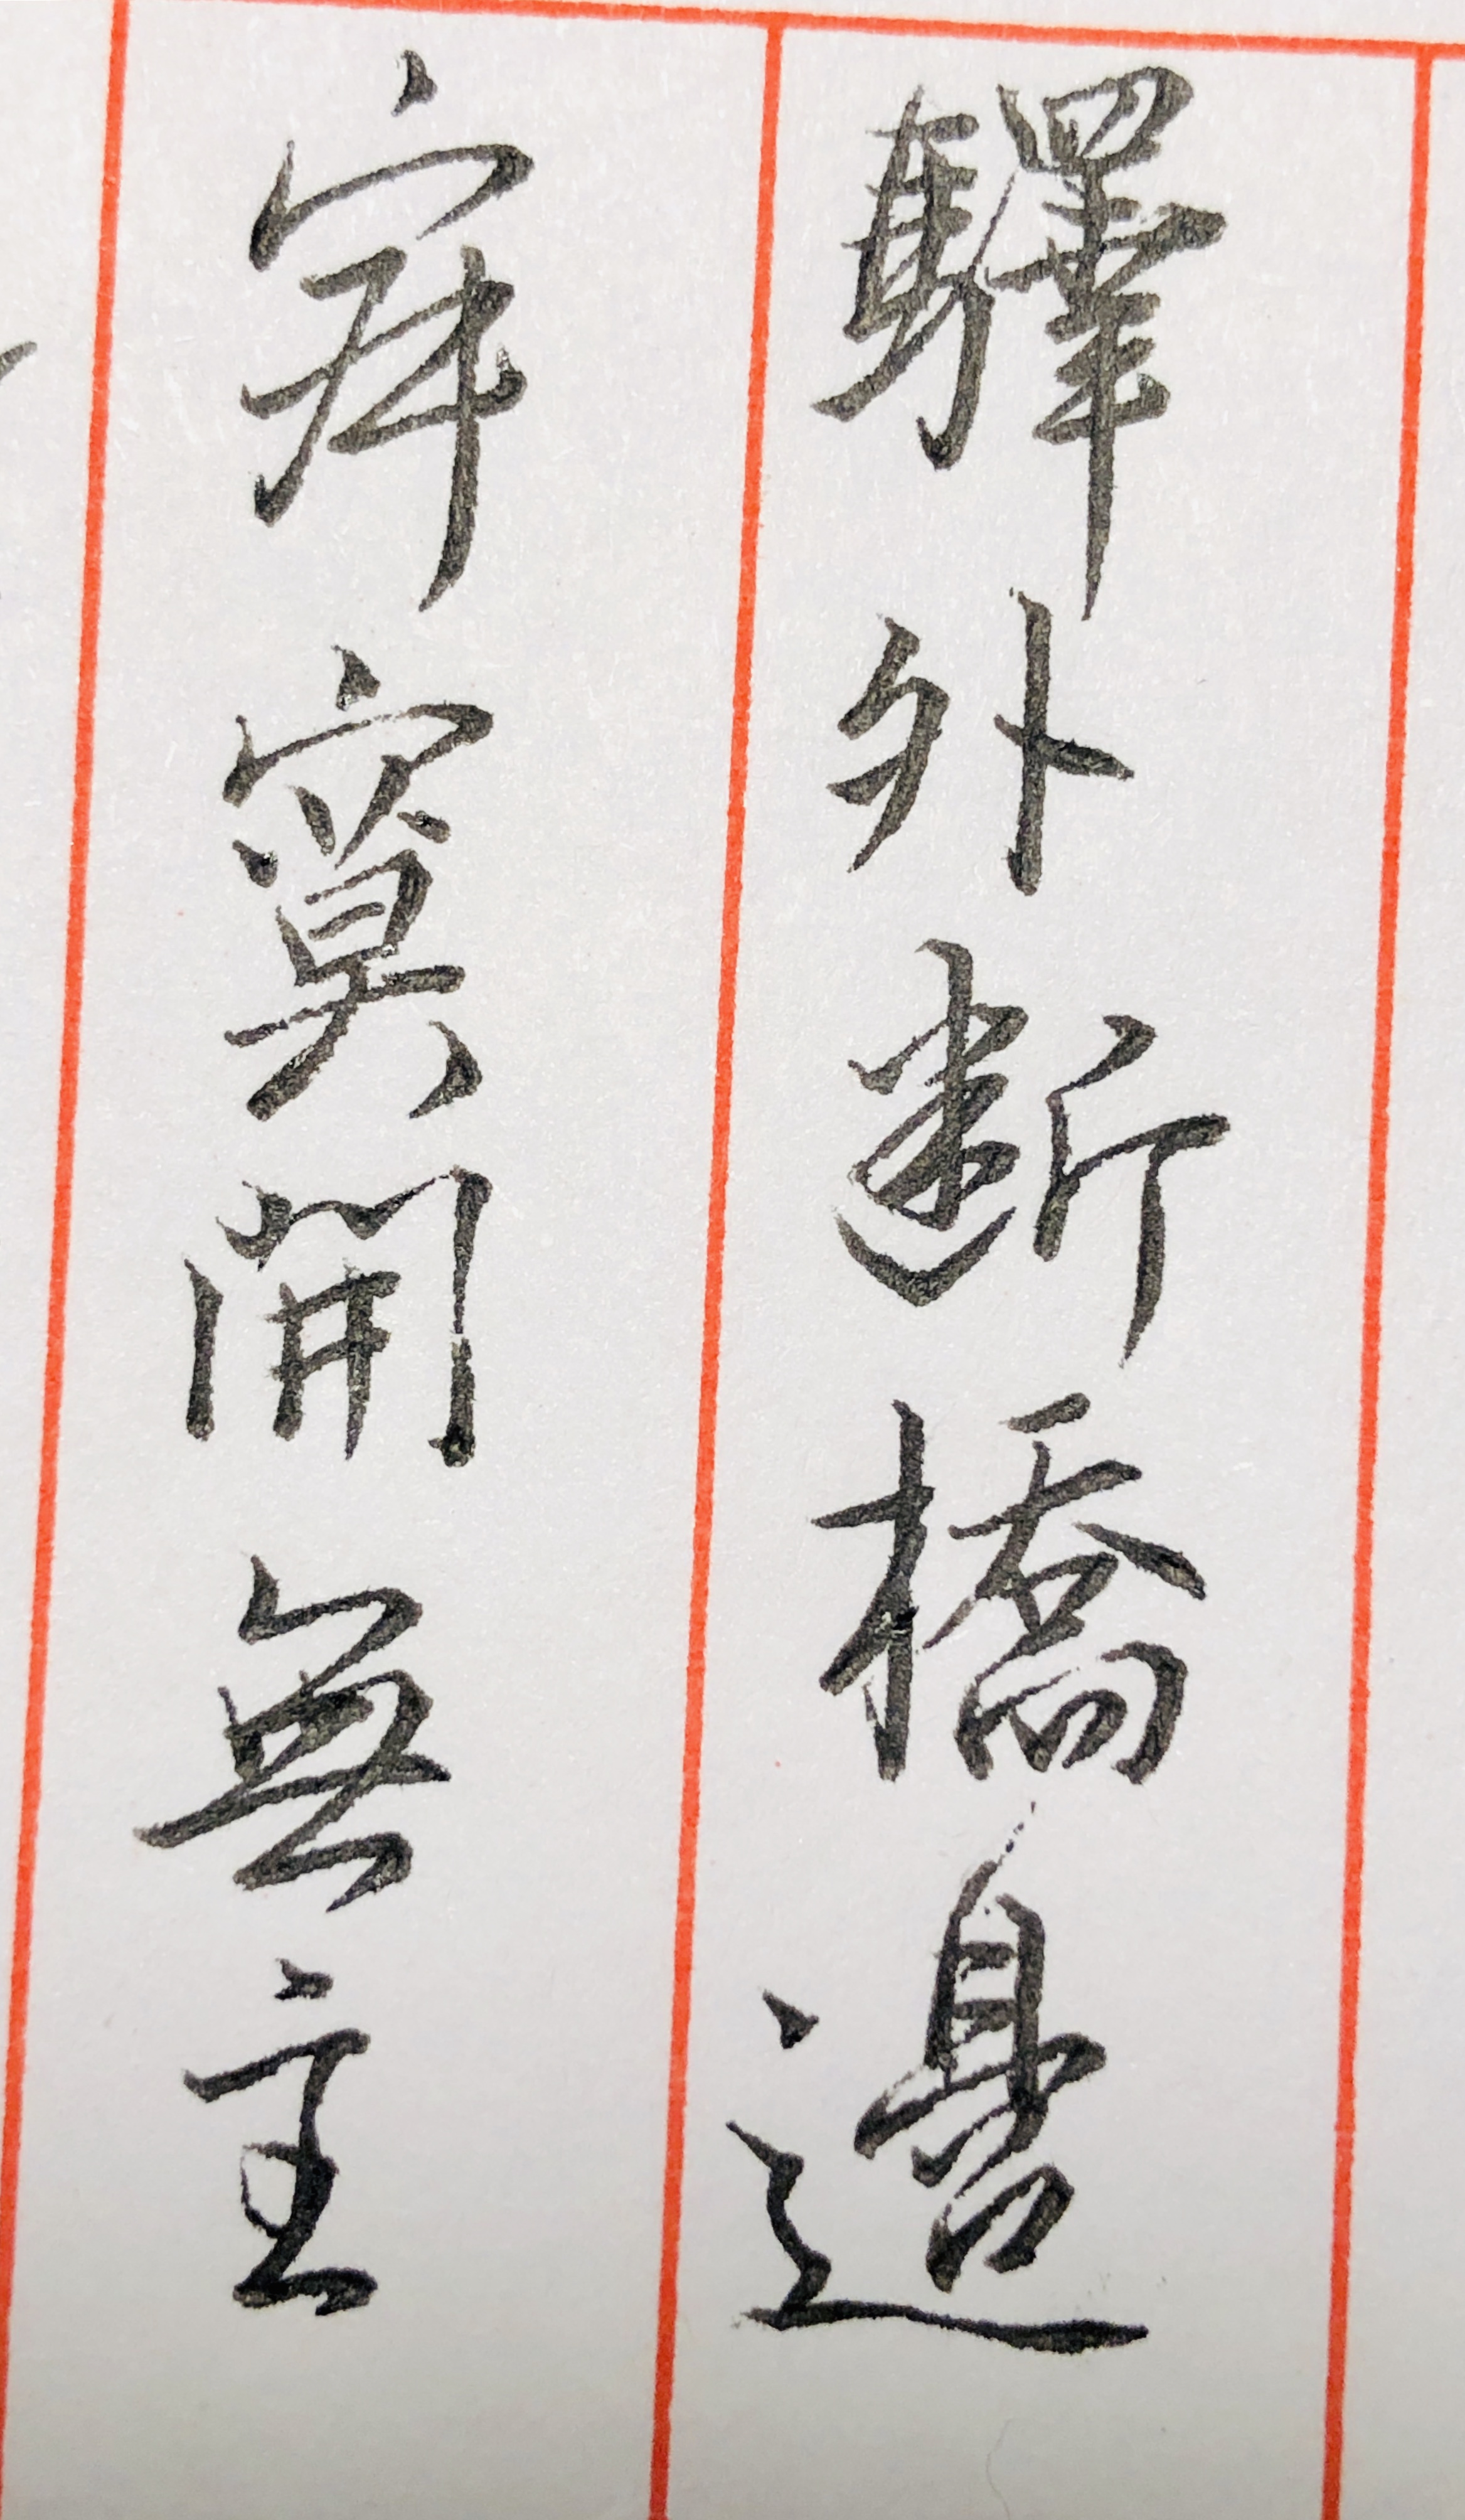 驛外断橋邊
寂寞開無主